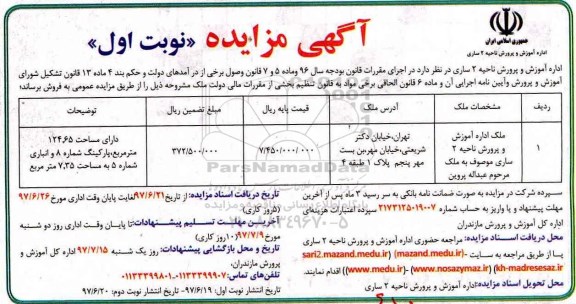 آگهی مزایده «نوبت اول»
جمهوری اسلامی ایران
اداره آموزش و پرورش ناحیه ۲ ساری
اداره آموزش و پرورش ناحیه ۲ ساری در نظر دارد در اجرای مقررات قانون بودجه سال ۹۶ وماده ۵ و ۷ قانون وصول برخی از در آمدهای دولت و حکم بند ۴ ماده ۱۳ قانون تشکیل شورای
آموزش و پرورش وآیین نامه اجرایی آن و ماده ۶ قانون الحاقی برخی مواد به قانون تنظیم بخشی از مقررات مالی دولت ملک مشروحه ذیل را از طریق مزایده عمومی به فروش برساند؛
ردیف مشخصات ملک آدرس ملک قیمت پایه ریال مبلغ تضمین ریال توضیحات
۱ ملک اداره آموزش و پرورش ناحیه ۲ ساری موصوف به ملک مرحوم عبداله پروین تهران،خیابان دکتر شریعتی،خیابان مهرین بست مهر پنجم پلاک ۱ طبقه ۴ ۷/۴۵۰/۰۰۰/۰۰۰ ۳۷۲/۵۰۰/۰۰۰ دارای مساحت ۱۲۴،۶۵ مترمربع،پارکینگ شماره ۸ و انباری شماره ۵ به مساحت ۷،۳۵ متر مربع
ParsNamadData
سپرده شرکت در مزایده به صورت ضمانت نامه بانکی به سر رسید ۳ ماه پس از آخرین
مهلت پیشنهاد و یا واریز به حساب شماره ۲۱۷۳۱۲۵۰۱۹۰۰۷ سپرده اعتبارات هزینه‌ای
اداره کل آموزش و پرورش مازندران
محل دریافت اسناد مزایده: مراجعه حضوری اداره آموزش و پرورش ناحیه ۲ ساری
یا از طریق مراجعه به سایت (sari2.mazand.medu.ir) (mazand.medu.ir)-
(kh-madresesaz.ir) (www.nosazymaz.ir)- (www.medu.ir)) اقدام نمایند.
محل تحویل اسناد مزایده: اداره آموزش و پرورش ناحیه ۲ ساری
تاریخ دریافت اسناد مزایده: از تاریخ ۹۷/۶/۲۱ لغایت پایان وقت اداری مورخ ۹۷/۶/۲۶
(۵روز کاری)
آخرین مهلت تسلیم پیشنهادات: تا پایان وقت اداری روز دو شنبه
مورخ ۹۷/۷/۹ (۱۰روز کاری)
تاریخ و محل بازگشایی پیشنهادات: روز یک شنبه ۹۷/۷/۱۵ اداره کل آموزش و
پرورش مازندران.
تلفن‌های تماس: ۰۱۱۳۳۳۹۹۹۰۷-۰۱۱۳۳۳۹۹۸۰۱
تاریخ انتشار نوبت اول: ۹۷/۶/۱۹- تاریخ انتشار نوبت دوم: ۹۷/۶/۲۰